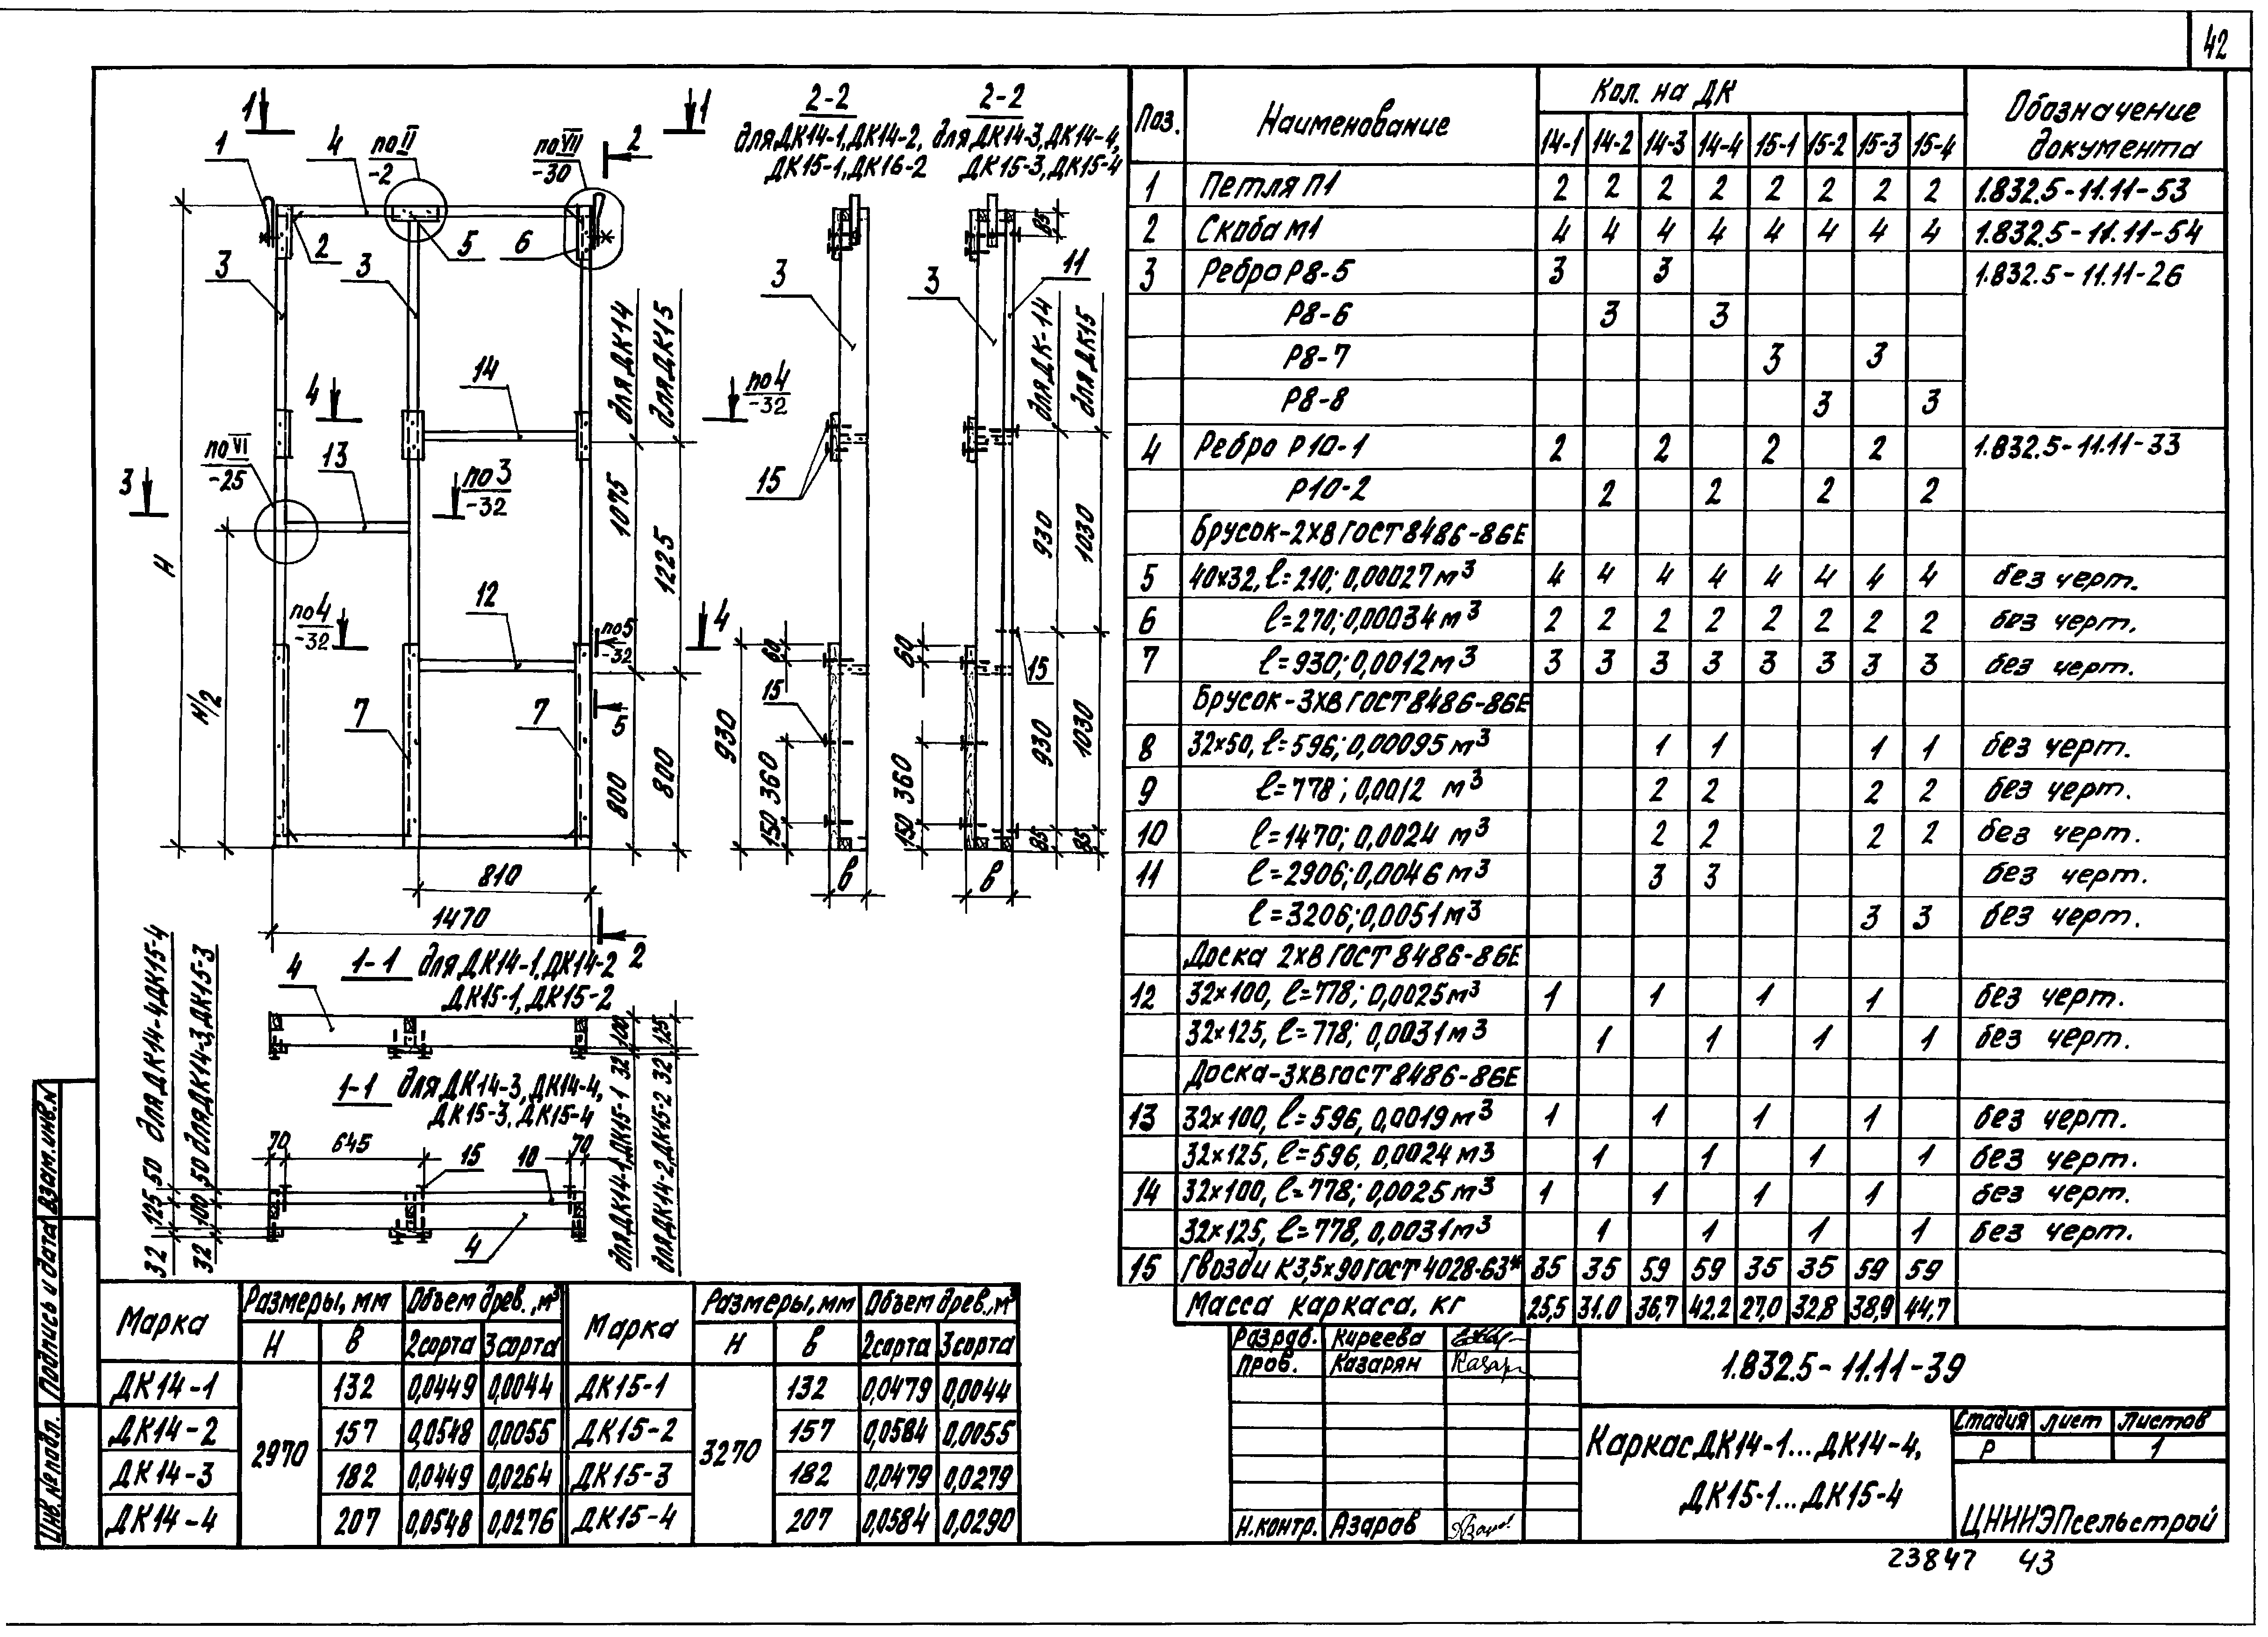 42
1 1
2-2 2-2
для ДК14-1, ДК14-2, для ДК14-3, ДК14-4,
ДК15-1, ДК16-2 ДК15-3, ДК15-4
1 4 по II -2 по VII -30 2
2 5 6
3 3 3 3 11
для ДК14 для ДК15 для ДК-14 для ДК15
85
14
4 по 4 -32
по VI -25
13
3 по 3 -32
15
1075 1225
930 1030
H
12
по 4 -32 по 5 -32 4
60 60
15 15
H/2
7 7 5
930 360 150 930 1030 360 150
800 800
85 85
810 в в
1470
2
1-1 для ДК14-1, ДК14-2
ДК15-1, ДК15-2
4
50 для ДК14-4 ДК15-4
50 для ДК14-3, ДК15-3
100 125
32 для ДК14-1, ДК15-1
32 для ДК14-2, ДК15-2
1-1 для ДК14-3, ДК14-4,
ДК15-3, ДК15-4
70 645 15 10 70
125 100
32 32
4
Марка Размеры, мм Объем древ., м³ Марка Размеры, мм Объем древ., м³
H в 2сорта 3сорта H в 2сорта 3сорта
ДК14-1 2970 132 0,0449 0,0044 ДК15-1 3270 132 0,0479 0,0044
ДК14-2 157 0,0548 0,0055 ДК15-2 157 0,0584 0,0055
ДК14-3 182 0,0449 0,0264 ДК15-3 182 0,0479 0,0279
ДК14-4 207 0,0548 0,0276 ДК15-4 207 0,0584 0,0290
Поз. Наименование Кол. на ДК Обозначение документа
14-1 14-2 14-3 14-4 15-1 15-2 15-3 15-4
1 Петля П1 2 2 2 2 2 2 2 2 1.832.5-11.11-53
2 Скоба М1 4 4 4 4 4 4 4 4 1.832.5-11.11-54
3 Ребро Р8-5 3 3 1.832.5-11.11-26
Р8-6 3 3
Р8-7 3 3
Р8-8 3 3
4 Ребро Р10-1 2 2 2 2 1.832.5-11.11-33
Р10-2 2 2 2 2
Брусок-2ХВ ГОСТ 8486-86Е
5 40×32, ℓ=210; 0,00027 м³ 4 4 4 4 4 4 4 4 без черт.
6 ℓ=270; 0,00034 м³ 2 2 2 2 2 2 2 2 без черт.
7 ℓ=930; 0,0012 м³ 3 3 3 3 3 3 3 3 без черт.
Брусок-3ХВ ГОСТ 8486-86Е
8 32×50, ℓ=596; 0,00095 м³ 1 1 1 1 без черт.
9 ℓ=778; 0,0012 м³ 2 2 2 2 без черт.
10 ℓ=1470; 0,0024 м³ 2 2 2 2 без черт.
11 ℓ=2906; 0,0046 м³ 3 3 без черт.
ℓ=3206; 0,0051 м³ 3 3 без черт.
Доска 2ХВ ГОСТ 8486-86Е
12 32×100, ℓ=778; 0,0025 м³ 1 1 1 1 без черт.
32×125, ℓ=778; 0,0031 м³ 1 1 1 1 без черт.
Доска-3ХВ ГОСТ 8486-86Е
13 32×100, ℓ=596, 0,0019 м³ 1 1 1 1 без черт.
32×125, ℓ=596, 0,0024 м3 1 1 1 1 без черт.
14 32×100, ℓ=778; 0,0025 м³ 1 1 1 1 без черт.
32×125, ℓ=778, 0,0031 м³ 1 1 1 1 без черт.
15 Гвозди К3,5×90 ГОСТ 4028-63* 35 35 59 59 35 35 59 59
Масса каркаса, кг 25,5 31.0 36,7 42.2 27,0 32,8 38,9 44,7
Разраб. Киреева
Пров. Казарян Казар
Н.контр. Азаров
1.832.5-11.11-39
Каркас ДК14-1...ДК14-4,
ДК15-1...ДК15-4
Стадия Лист Листов
Р 1
ЦНИИЭПсельстрой
23847 43
Взам.инв.N
Подпись и дата
Инв.№ подл.